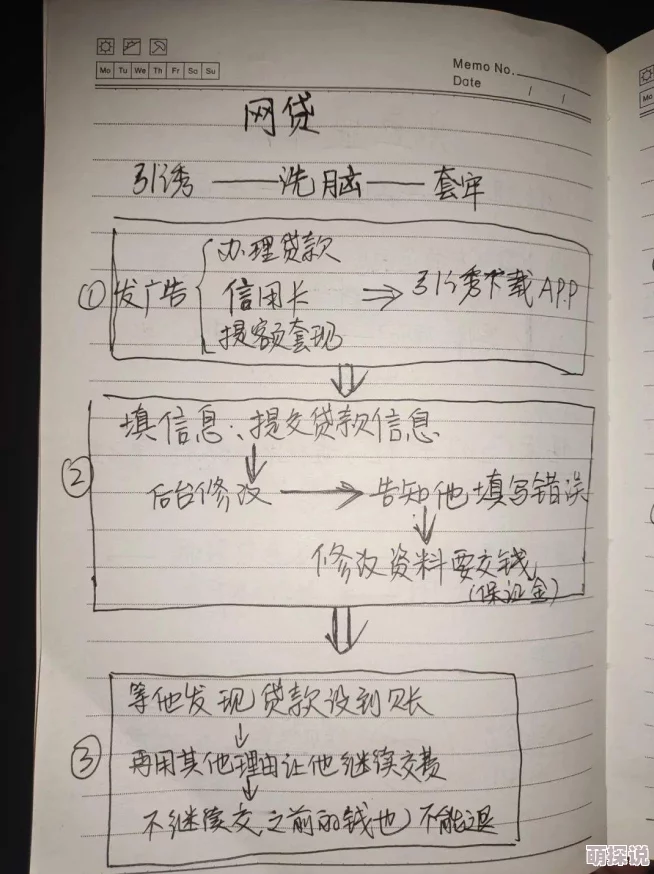 Memo No.
Mo Tu We Th Fr Sa Su
Date / /
网贷
引诱——洗脑——套牢
办理贷款
①发广告 信用卡 ⇒ 引诱下载APP
提额套现
⇓
②填信息、提交贷款信息
↓
后台修改 → 告知他填写错误
↓
修改资料要交钱
(保证金)
⇓
等他发现贷款没到账
↓
③再用其他理由让他继续交费
↓
不继续交,之前的钱也不能退
萌探说